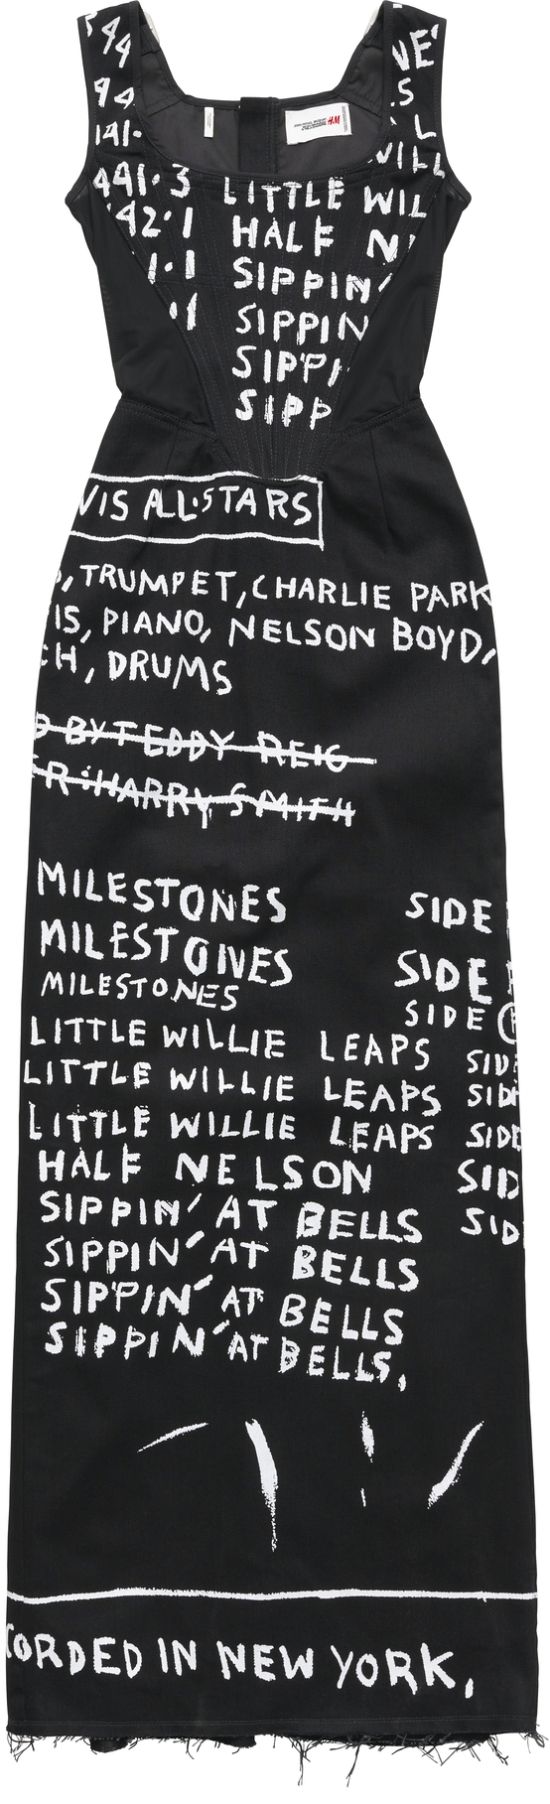 44
44 VE
141. .S
441.3 LITTLE WILL
42.1 HALF N
1.1 SIPPIN'
.1 SIPPIN
SIPPI
SIPP
H&M
VIS ALL.STARS
, TRUMPET, CHARLIE PARK
IS, PIANO, NELSON BOYD,
CH, DRUMS
D BY TEDDY REIG
R: HARRY SMITH
MILESTONES SIDE
MILESTONES SIDE
MILESTONES SIDE
LITTLE WILLIE LEAPS SIDE
LITTLE WILLIE LEAPS SIDE
LITTLE WILLIE LEAPS SIDE
HALF NELSON SID
SIPPIN' AT BELLS SID
SIPPIN' AT BELLS
SIPPIN' AT BELLS
SIPPIN' AT BELLS,
CORDED IN NEW YORK,